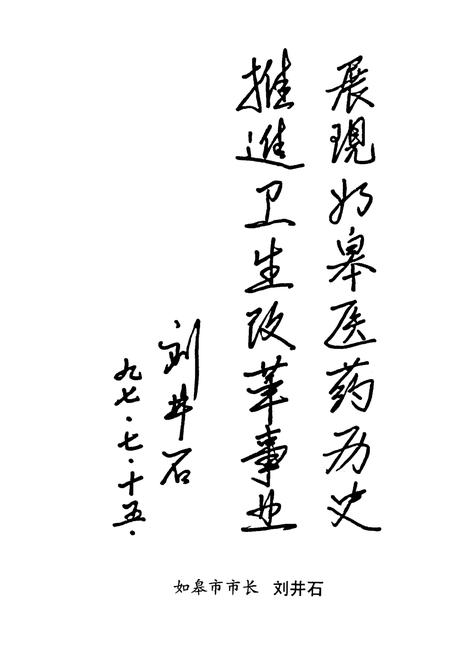 展現如皋医药历史
推進卫生改革事业
刘井石
九七·七·十五·
如皋市市长 刘井石